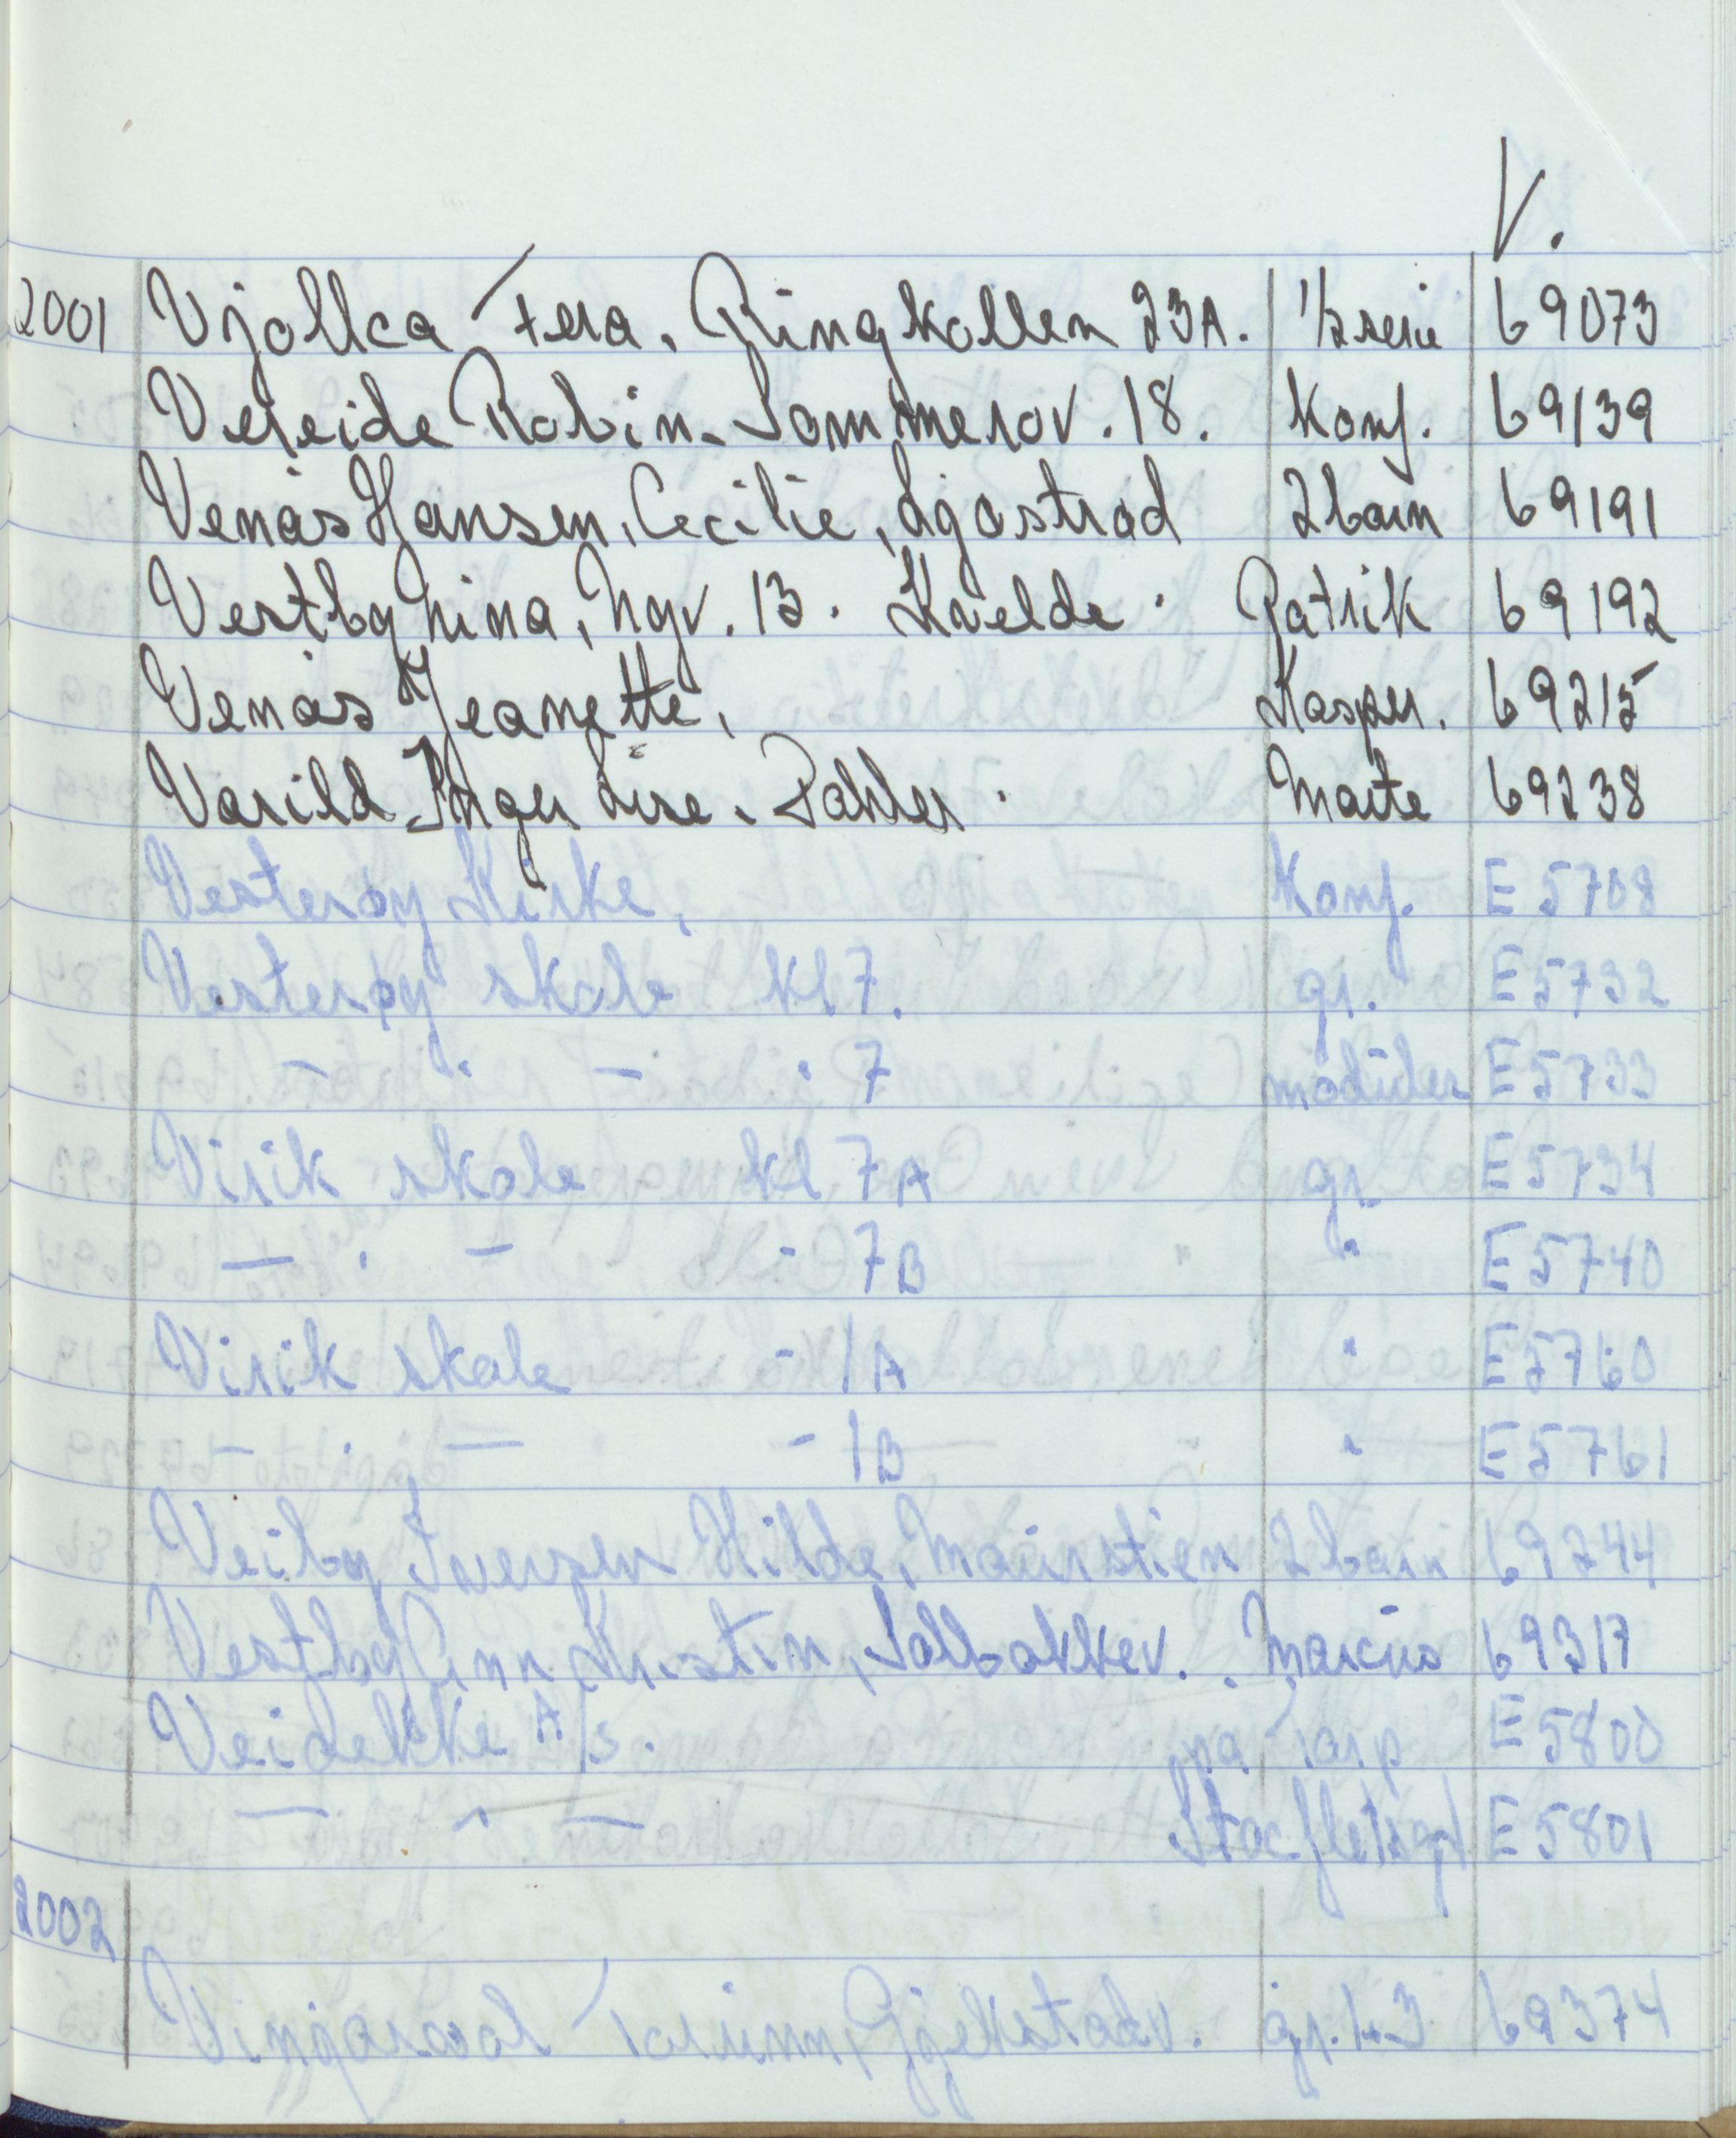 V.
2001 Vjollca Fera, Ringkollen 23A. 1/2 serie 69073
Vereide Robin. Sommerov. 18. Konf. 69139
Venås Hansen, Cecilie, Ågostrød 2 barn 69191
Vestby Nina, Nyv. 13. Kvelde. Patrik 69192
Venås Jeanette, Kasper. 69215
Varild Inger Lise. Pahler. Marte 69238
Vesterøy Kirke, Konf. E 5708
Vesterøy skole kl 7. gr. E 5732
— " — " 7 modüler E 5733
Virik skole kl 7A gr E 5734
— " — - 7B " E 5740
Virik skole - 1A " E 5760
— " — - 1B " E 5761
Veiby Iversen Hilde, Maurstien 2 barn 69244
Vestby Ann Kristin, Solbakkev. Marcus 69317
Veidekke A/S. på Torp E 5800
— " — E 5801
2002
Torunn, Gjekstadv. gr. 1+3 69374